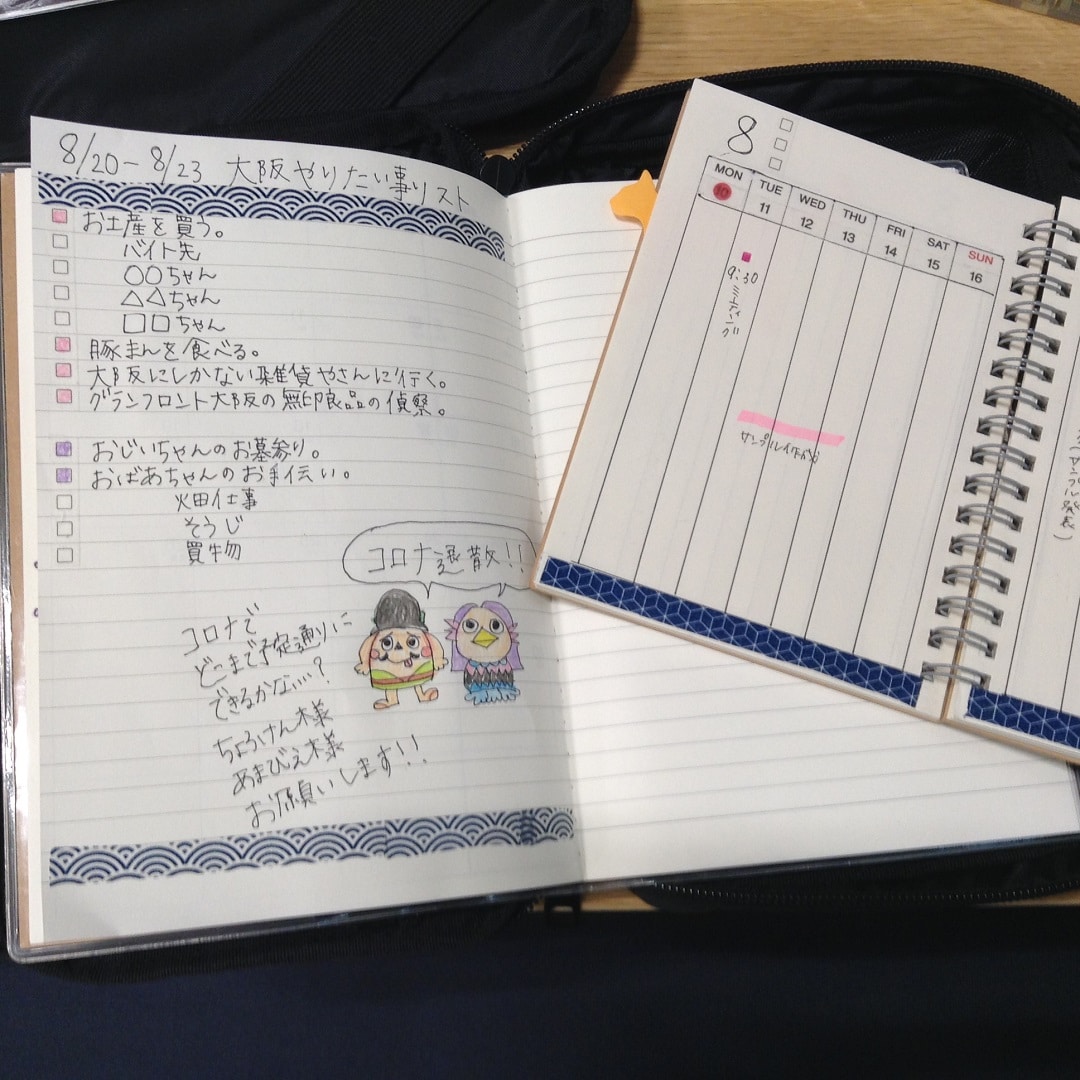 8/20-8/23 大阪やりたい事リスト
お土産を買う。
バイト先
○○ちゃん
△△ちゃん
□□ちゃん
豚まんを食べる。
大阪にしかない雑貨やさんに行く。
グランフロント大阪の無印良品の偵察。
おじいちゃんのお墓参り。
おばあちゃんのお手伝い。
畑仕事
そうじ
買物
コロナ退散!!
コロナで
どこまで予定通りに
できるかない…?
ちょうけん様
あまびえ様
お願いします!!
8
MON TUE WED THU FRI SAT SUN
10 11 12 13 14 15 16
9:30 ミーティング
サンプル